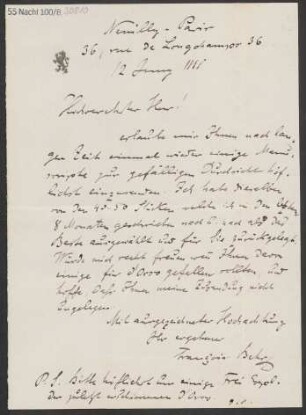 55 Nachl 100/B,
Neuilly-Paris
36, rue de Longchamps 36
12 Juny
Hochverehrter Herr!
erlaube mir Ihnen nach lan-
gen Zeit einmal wieder einige Manu-
scripte zur gefälligen Durchsicht höf-
lichst einzusenden. Ich habe dieselben
von den 45-50 Stücken welche ich in den letzten
8 Monaten geschrieben noch und als das
Beste ausgewählt und für Sie zurückgelegt.
Würde mich recht freuen wenn Ihnen davon
einige für gefallen sollten und
hoffe dass Ihnen meine Zusendung nicht
ungelegen.
Mit ausgezeichneter Hochachtung
Ihr ergebener
François Behr
P.S. Bitte höflichst um einige Frei Expl.
der zuletzt erschienenen